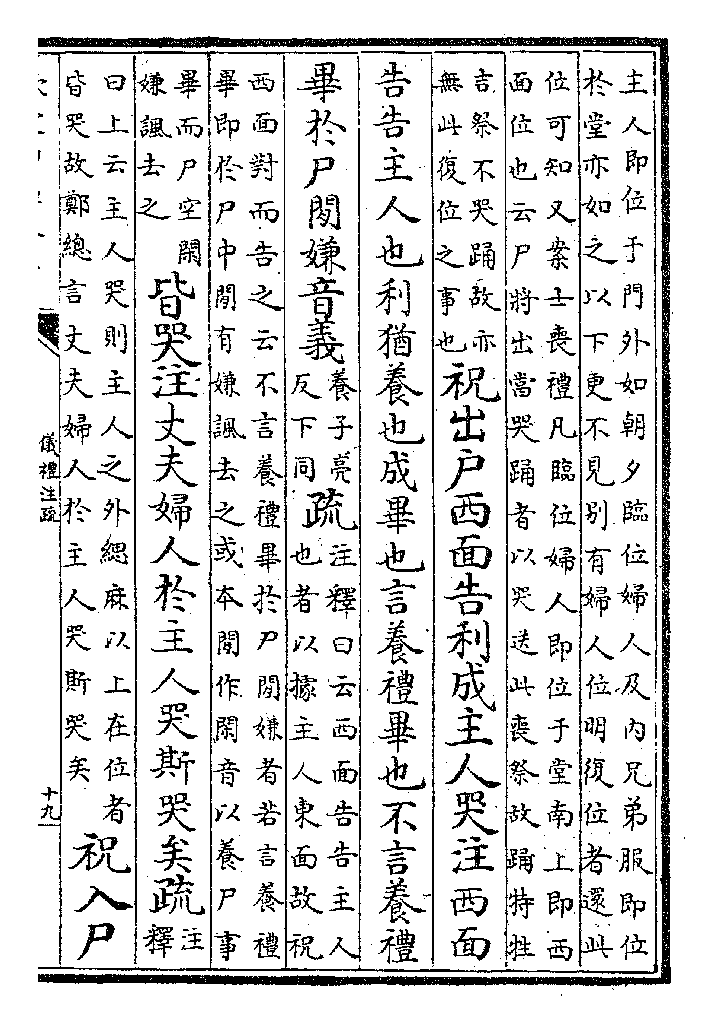 主人即位于門外如朝夕臨位婦人及內兄弟服即位
於堂亦如之以下更不見別有婦人位明復位者還此
位可知又案士喪禮凡臨位婦人即位于堂南上即西
面位也云尸將出當哭踊者以哭送此喪祭故踊特牲
吉祭不哭踊故亦
無此復位之事也
祝出戶西面告利成主人哭注西面
告告主人也利猶養也成畢也言養禮畢也不言養禮
畢於尸閒嫌音義
養子亮
反下同
疏
注釋曰云西面告告主人
也者以據主人東面故祝
西面對而告之云不言養禮畢於尸閒嫌者若言養禮
畢即於尸中閒有嫌諷去之或本閒作閑音以養尸事
畢而尸空閑
嫌諷去之
皆哭注丈夫婦人於主人哭斯哭矣疏
注
釋
曰上云主人哭則主人之外緦麻以上在位者
皆哭故鄭總言丈夫婦人於主人哭斯哭矣
祝入尸
儀禮注疏
十九